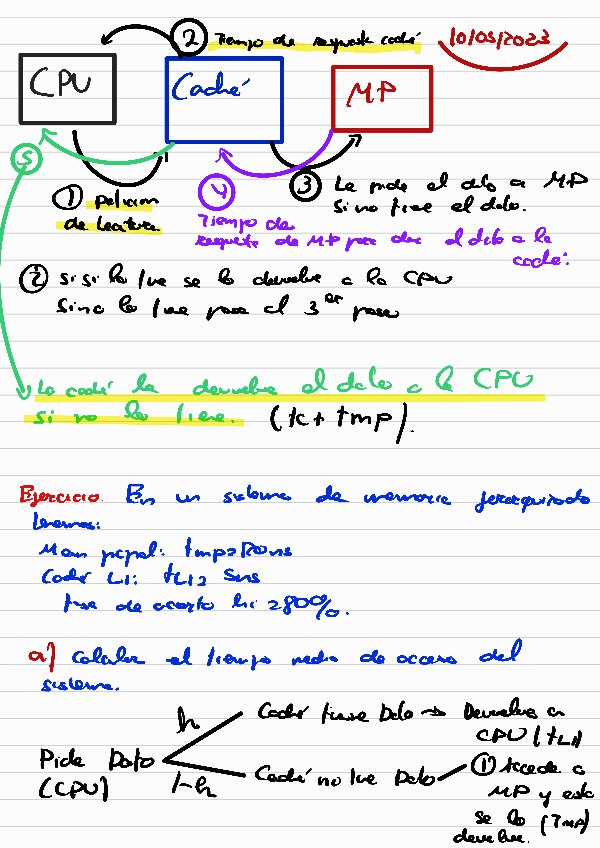 2 Tiempo de respuesta caché
10/05/2023
CPU
Caché
MP
5
1 peticion
de lectura
4
Tiempo de
respuesta de MP para dar el dato a la
caché.
3 Le pide el dato a MP
si no tiene el dato.
2 si si lo tiene se lo devuelve a la CPU
Si no lo tiene pasa al 3er paso
La caché le devuelve el dato a la CPU
si no lo tiene. (tc + tmp).
Ejercicio. En un sistema de memoria jerarquizado
tenemos:
Mem ppal: tmp = 120ns
Caché L1: tL1 = 5ns
tasa de acierto h1 = 80%.
a) Calcular el tiempo medio de acceso del
sistema.
Pide Dato
(CPU)
h
Caché tiene Dato → Devuelve a
CPU (tL1)
1-h
Caché no tiene Dato
1 Accede a
MP y esta
se lo (TMP)
devuelve.